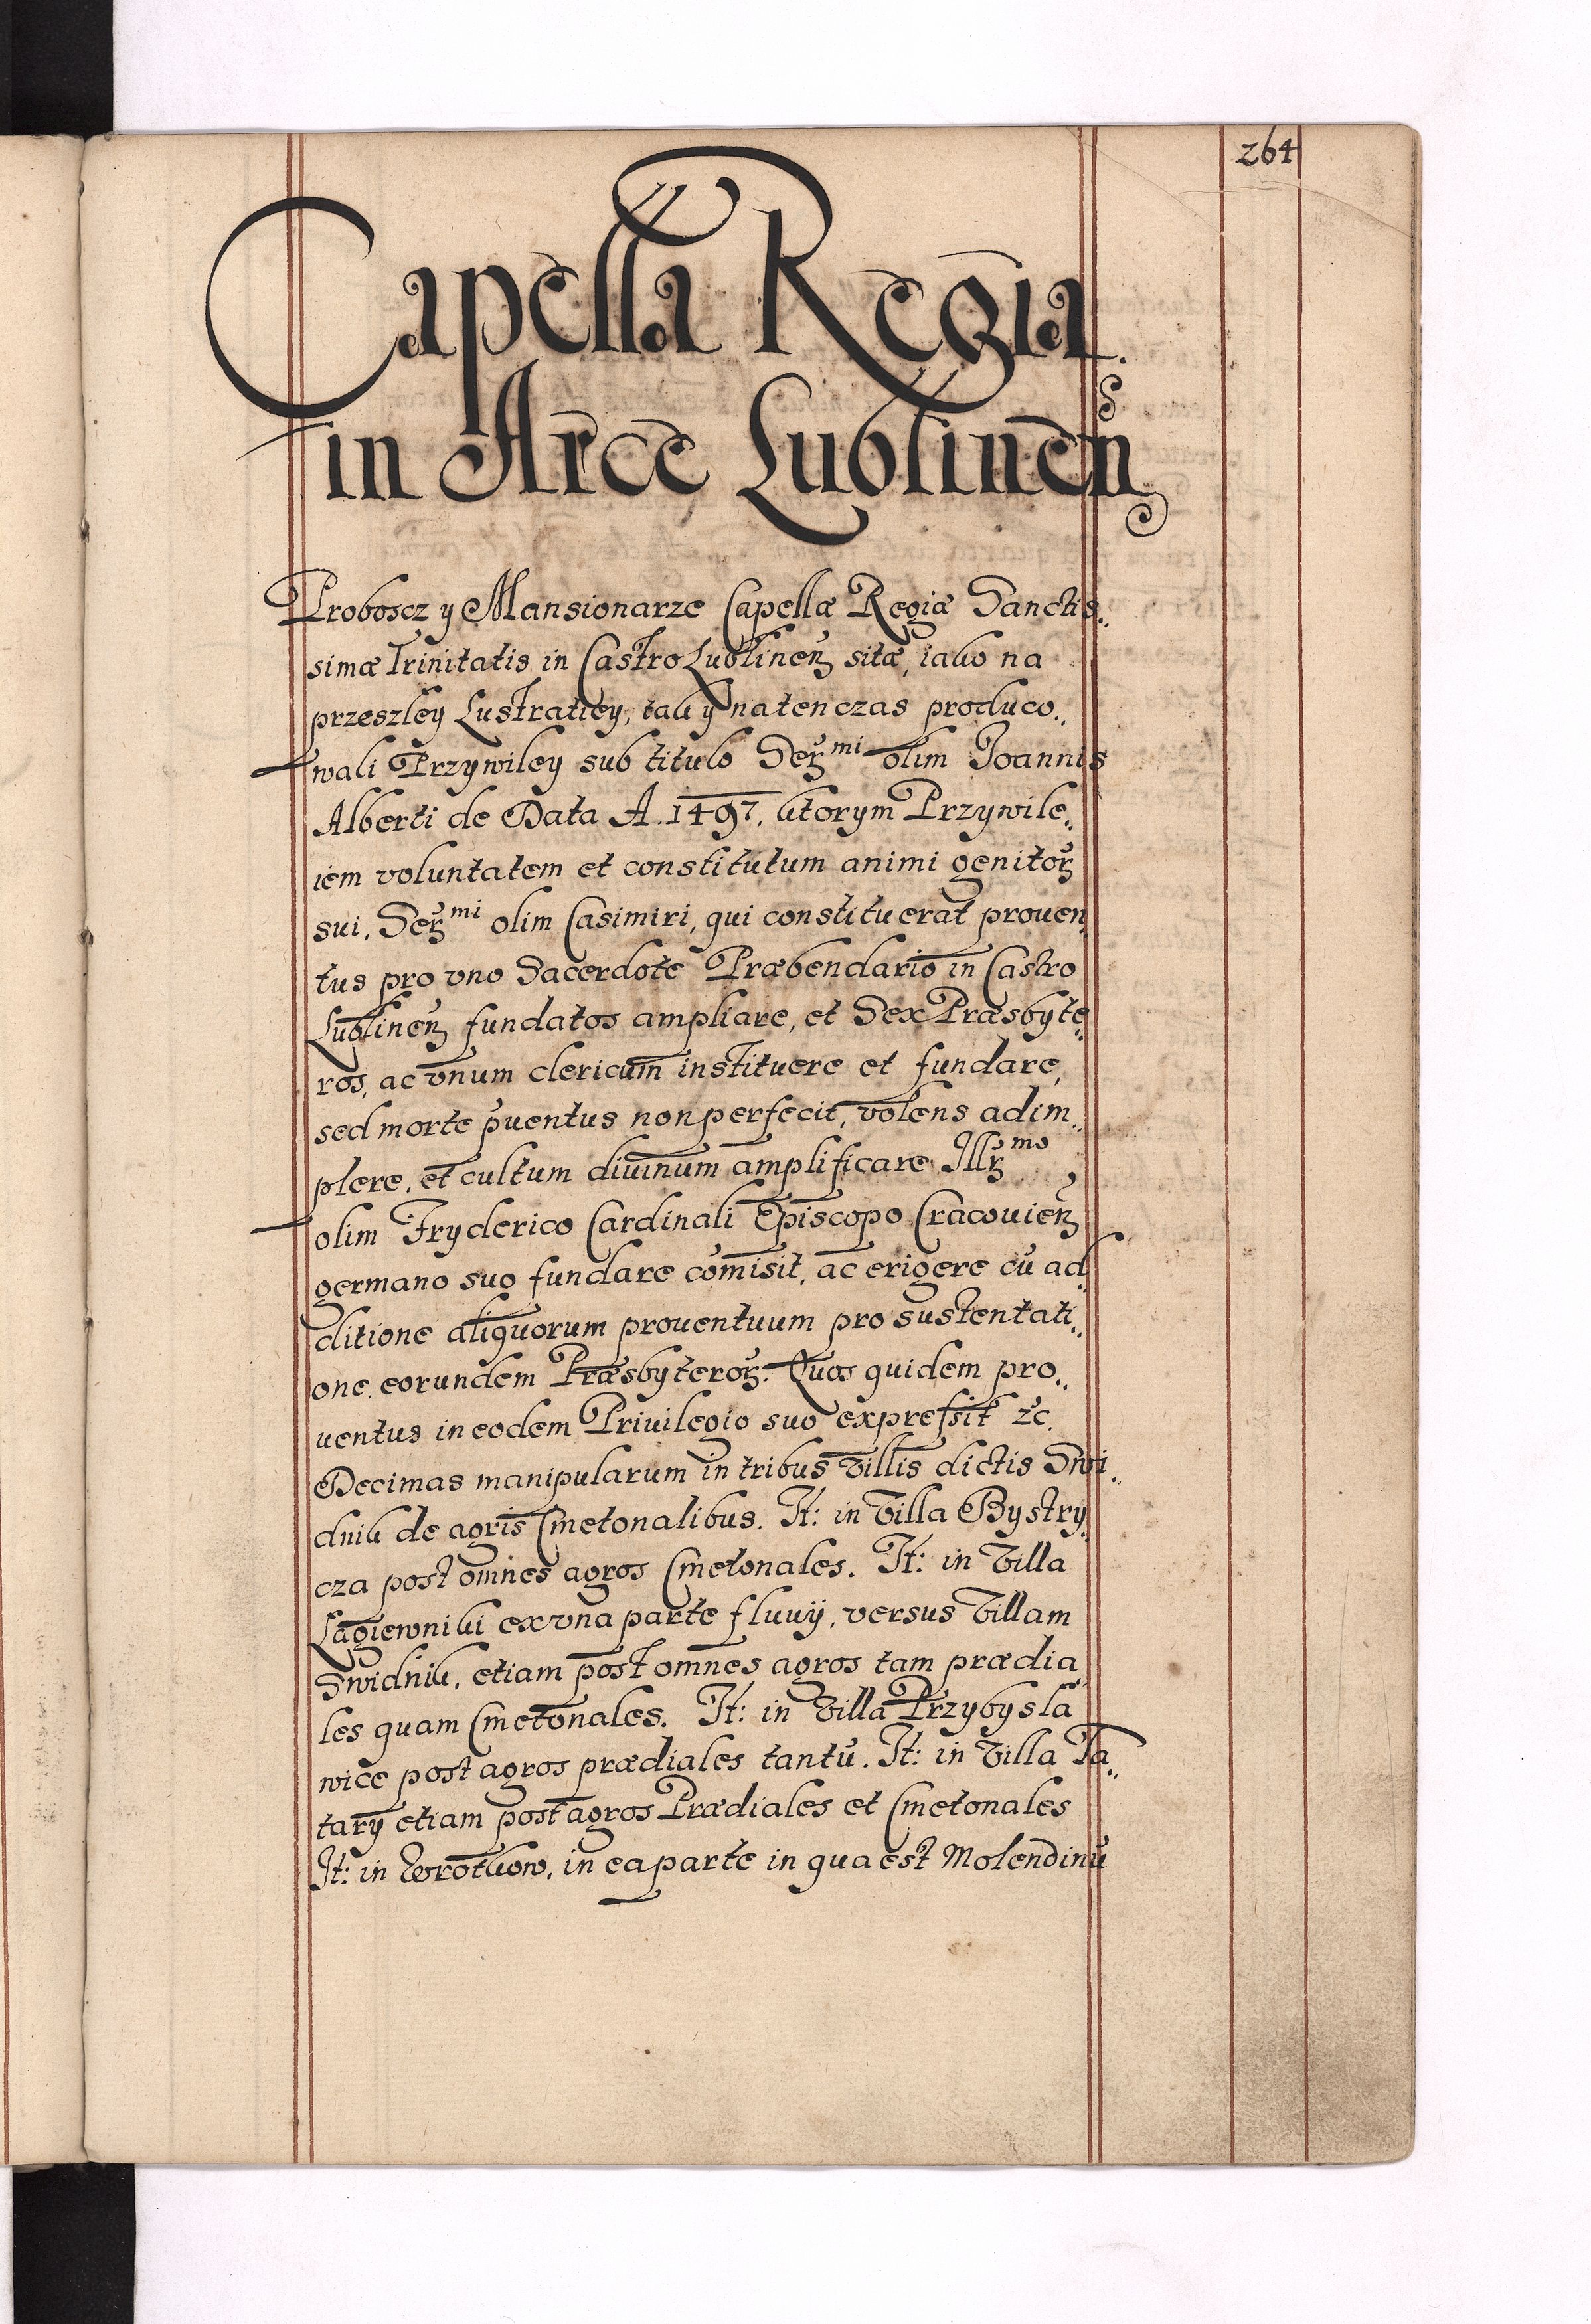 264
Capella Regia
in Arce Lublinen̄
Proboscz y Mansionarze Capellæ Regiæ Sanctis„
simæ Trinitatis in Castro Lublinen̄ sitæ, iako na
przeszłey Lustratiey, tak y natenczas produco„
wali Przywiley sub titulo Ser̄mi olim Joannis
Alberti de Data A. 1497. ktorym Przywile„
iem voluntatem et constitutum animi genitor̄
sui, Ser̄mi olim Casimiri, qui constituerat prouen„
tus pro vno Sacerdote Præbendario in Castro
Lublinen̄ fundatos ampliare, et Sex Præsbyte„
ros, ac vnum clericum instituere et fundare,
sed morte p̄uentus non perfecit, volens adim„
plere, et cultum diuinum amplificare Illr̄mo
olim Fryderico Cardinali Episcopo Cracouien̄
germano suo fundare com̄isit, ac erigere cū ad„
ditione aliquorum prouentuum pro sustentati„
one eorundem Præsbyteror̄. Quos quidem pro„
uentus in eodem Priuilegio suo expressit &c.
Decimas manipularum in tribus Villis dictis Swi„
dnik de agris Cmetonalibus. It: in Villa Bystry„
cza post omnes agros Cmetonales. It: in Villa
Łagiewniki ex vna parte fluuij, versus Villam
Swidnik, etiam post omnes agros tam prædia„
les quam Cmetonales. It: in Villa Przybysła„
wice post agros prædiales tantū. It: in Villa Ta„
tary etiam post agros Prædiales et Cmetonales
It: in Wrotkow, in ea parte in qua est Molendinū